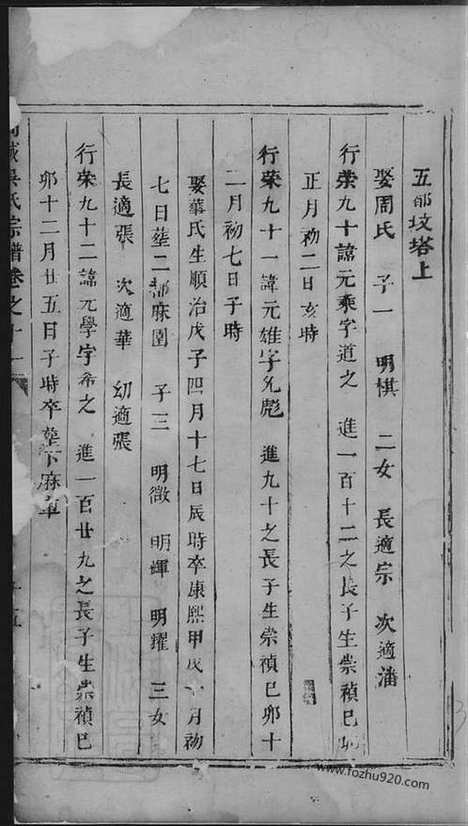 五都坟塔上
娶周氏 子一 明棋 二女 長適宗 次適潘
行榮九十諱元乘字道之 進一百十二之長子生崇禎巳卯
正月初二日亥時
行榮九十一諱元雄字允彪 進九十之長子生崇禎巳卯十
二月初七日子時
娶華氏生順治戊子四月十七日辰時卒康熙甲戌 月初
七日塟二都麻園 子三 明徵 明輝 明耀 三女
長適張 次適華 幼適張
行榮九十二諱元學字希之 進一百廿九之長子生崇禎巳
卯十二月廿五日子時卒塟下麻車
城吳氏宗譜卷之十一
十五
www.fozhu920.com